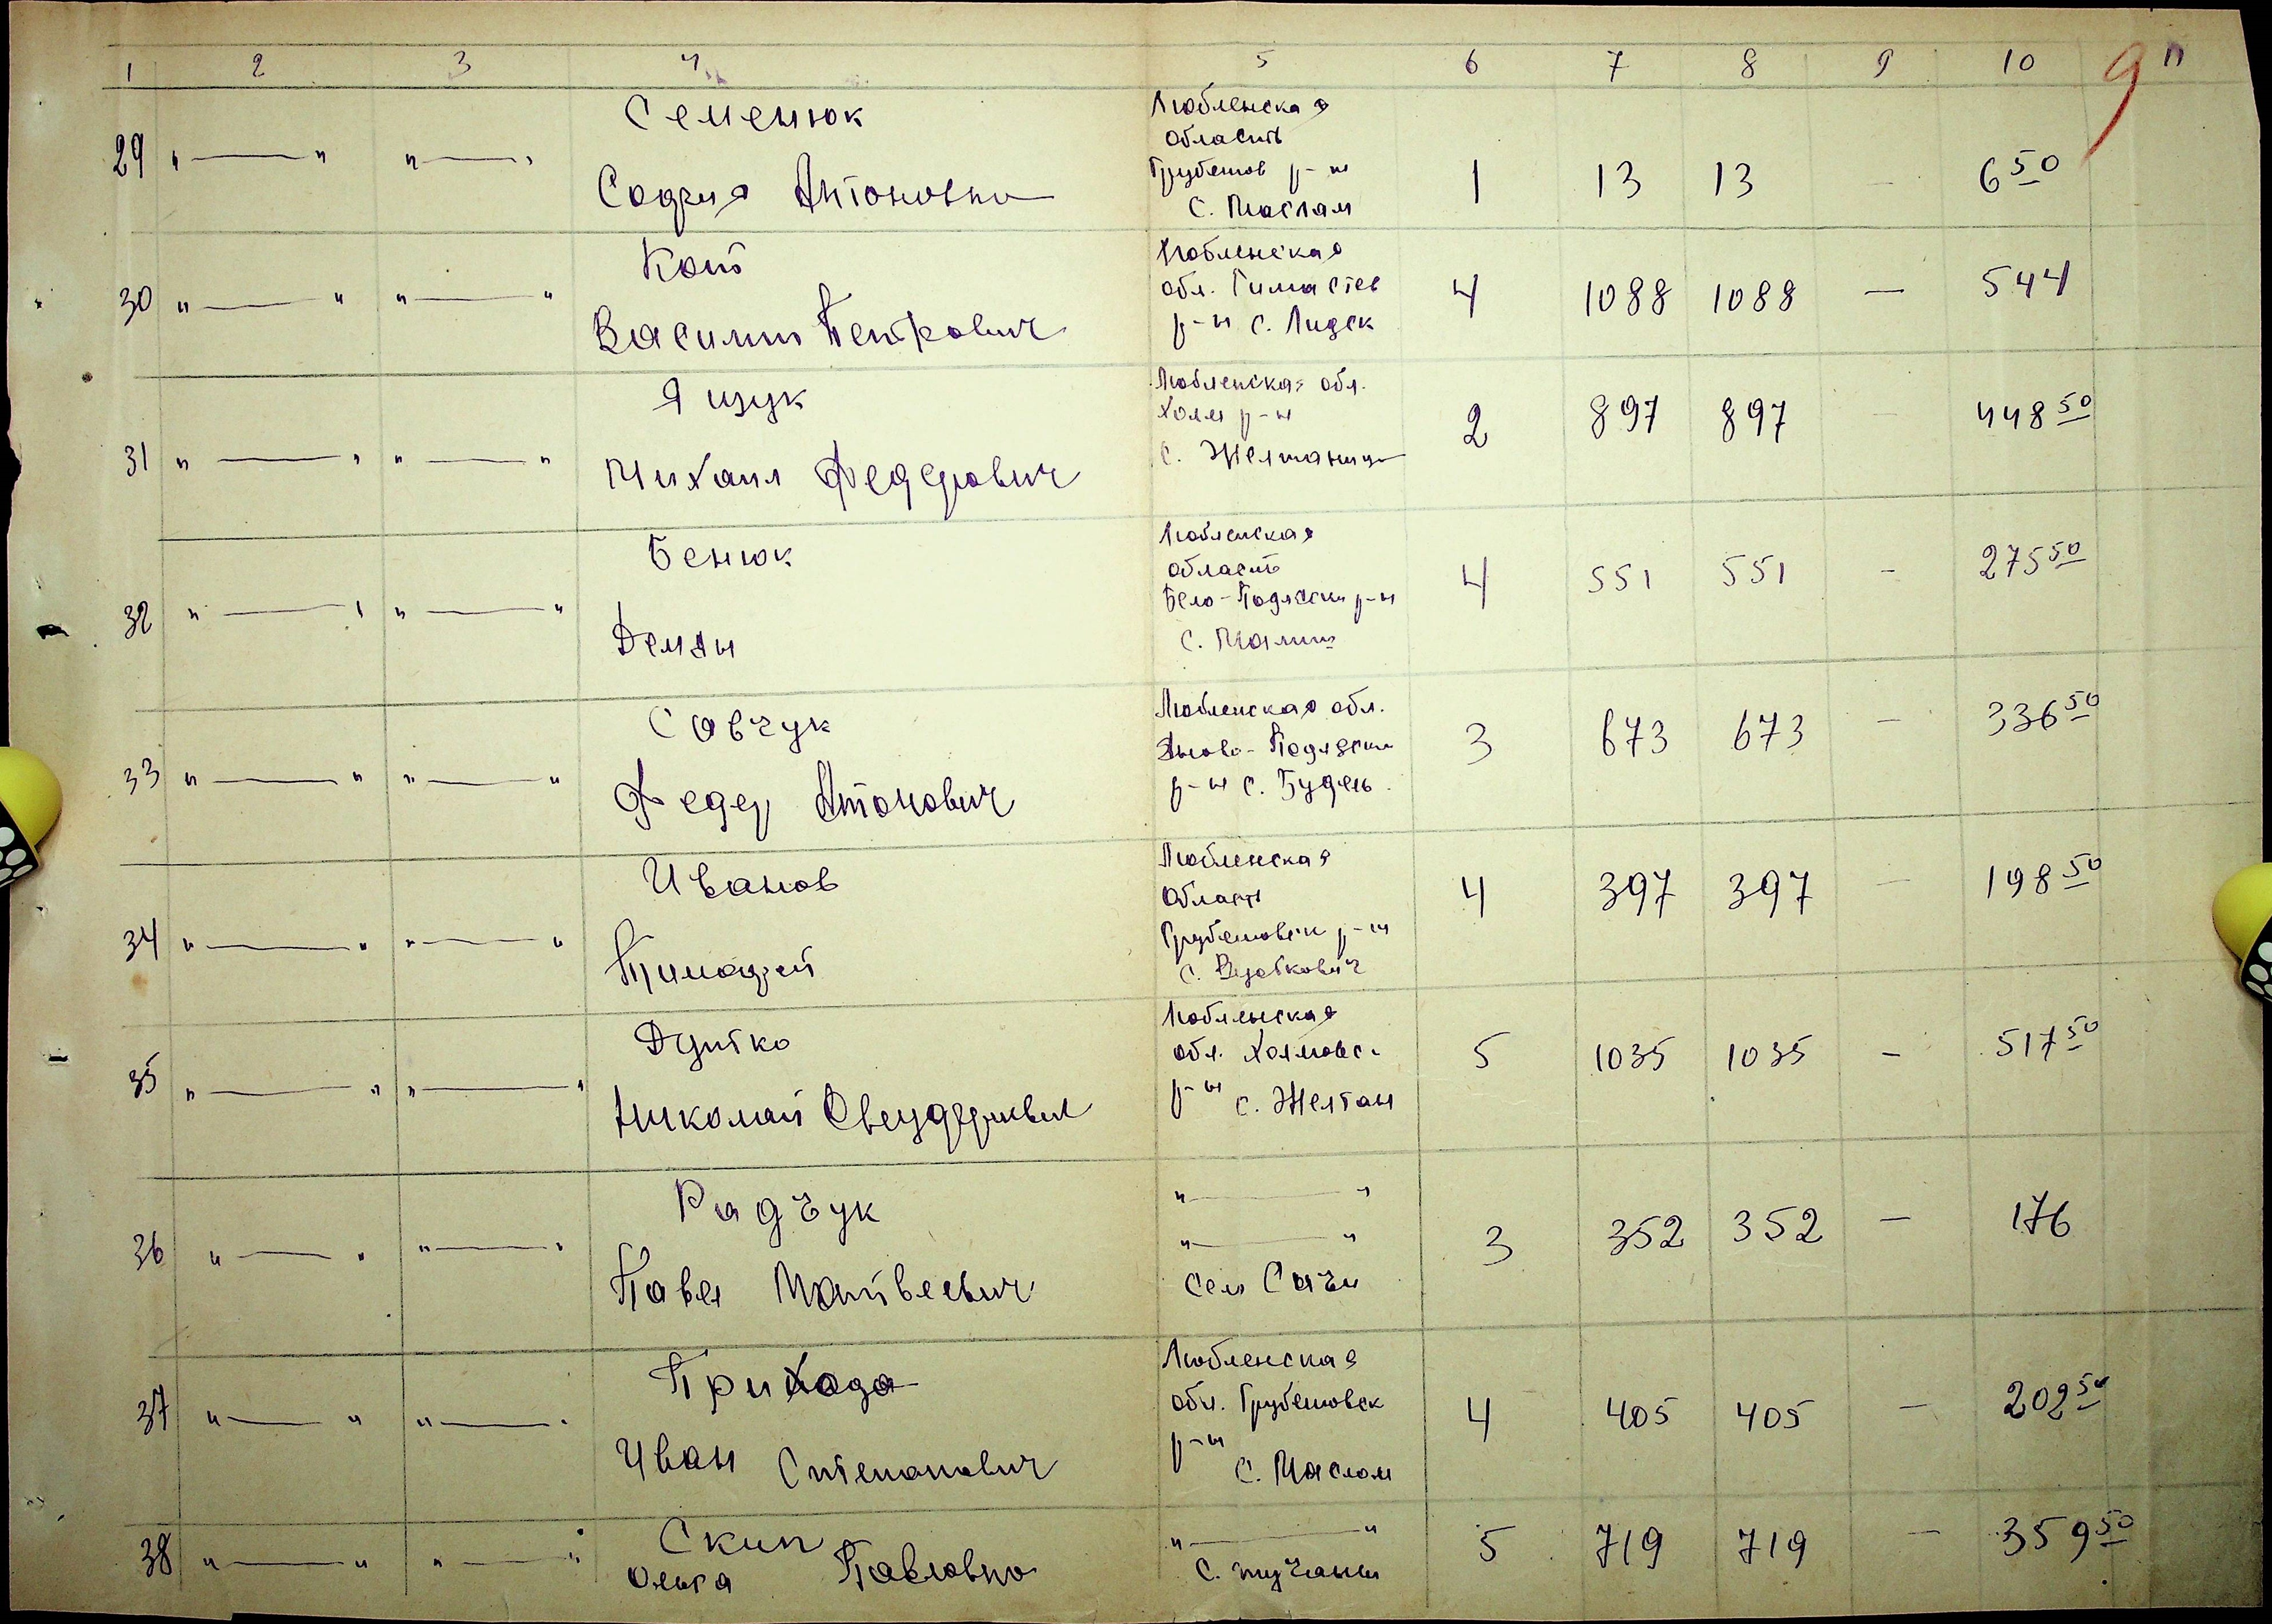 1 2 3 4 5 6 7 8 9 10 11
9
29 " — " " — " Семенюк
София Антоновна
Любленская
область
Грубешов р-н
с. Маслам
1 13 13 — 6 50
30 " — " " — " Кот
Василий Петрович
Любленская
обл.
р-н с. Лидск
4 1088 1088 — 544
31 " — " " — " Ящук
Михаил Федерович
Любленская обл.
Холм р-н
с. Желтаница
2 897 897 448 50
32 " — " " — " Бенюк
Демян
Любленская
область
Бело-Подлески р-н
с.
4 551 551 — 275 50
33 " — " " — " Савчук
Федер Антонович
Любленская обл.
р-н с.
3 673 673 — 336 50
34 " — " " — " Иванов
Тимофей
Любленская
область
Грубешовск р-н
с.
4 397 397 — 198 50
35 " — " " — " Дутко
Николай
Любленская
обл. Холмовс.
р-н с. Желтан
5 1035 1035 — 517 50
36 " — " " — " Радчук
Павел Матвеевич
" — "
" — "
Сел Сачи
3 352 352 — 176
37 " — " " — " Приходa
Иван Степанович
Любленская
обл. Грубешовск
р-н
с. Маслом
4 405 405 — 202 50
38 " — " " — " Скип
Ольга Павловна
" — "
с. тучани
5 719 719 — 359 50